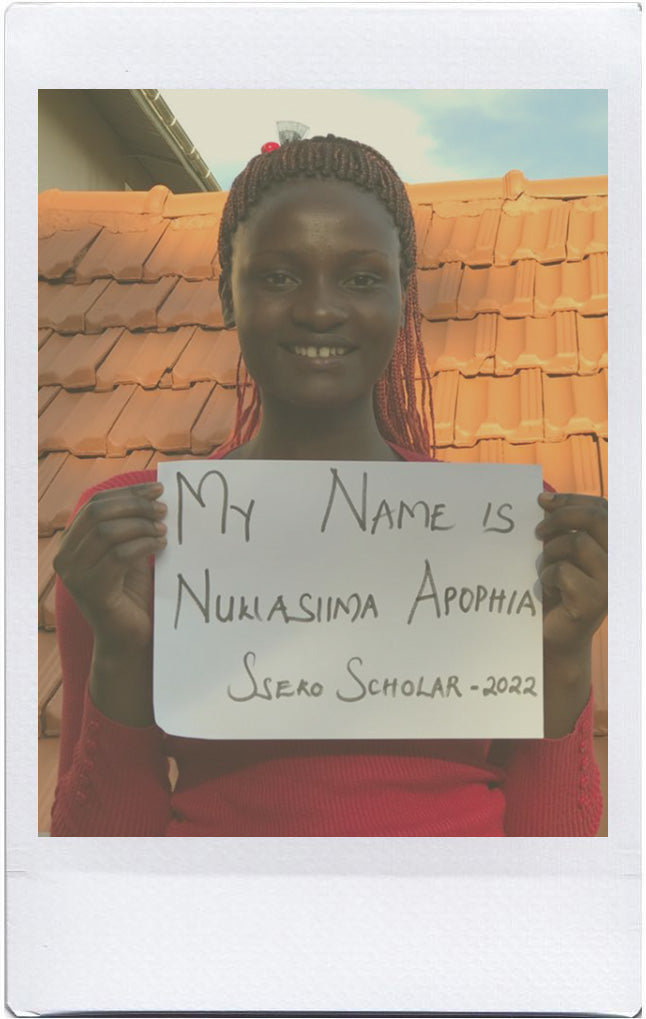 My NAME IS
NUKIASIIMA APOPHIA
SSERO SCHOLAR - 2022